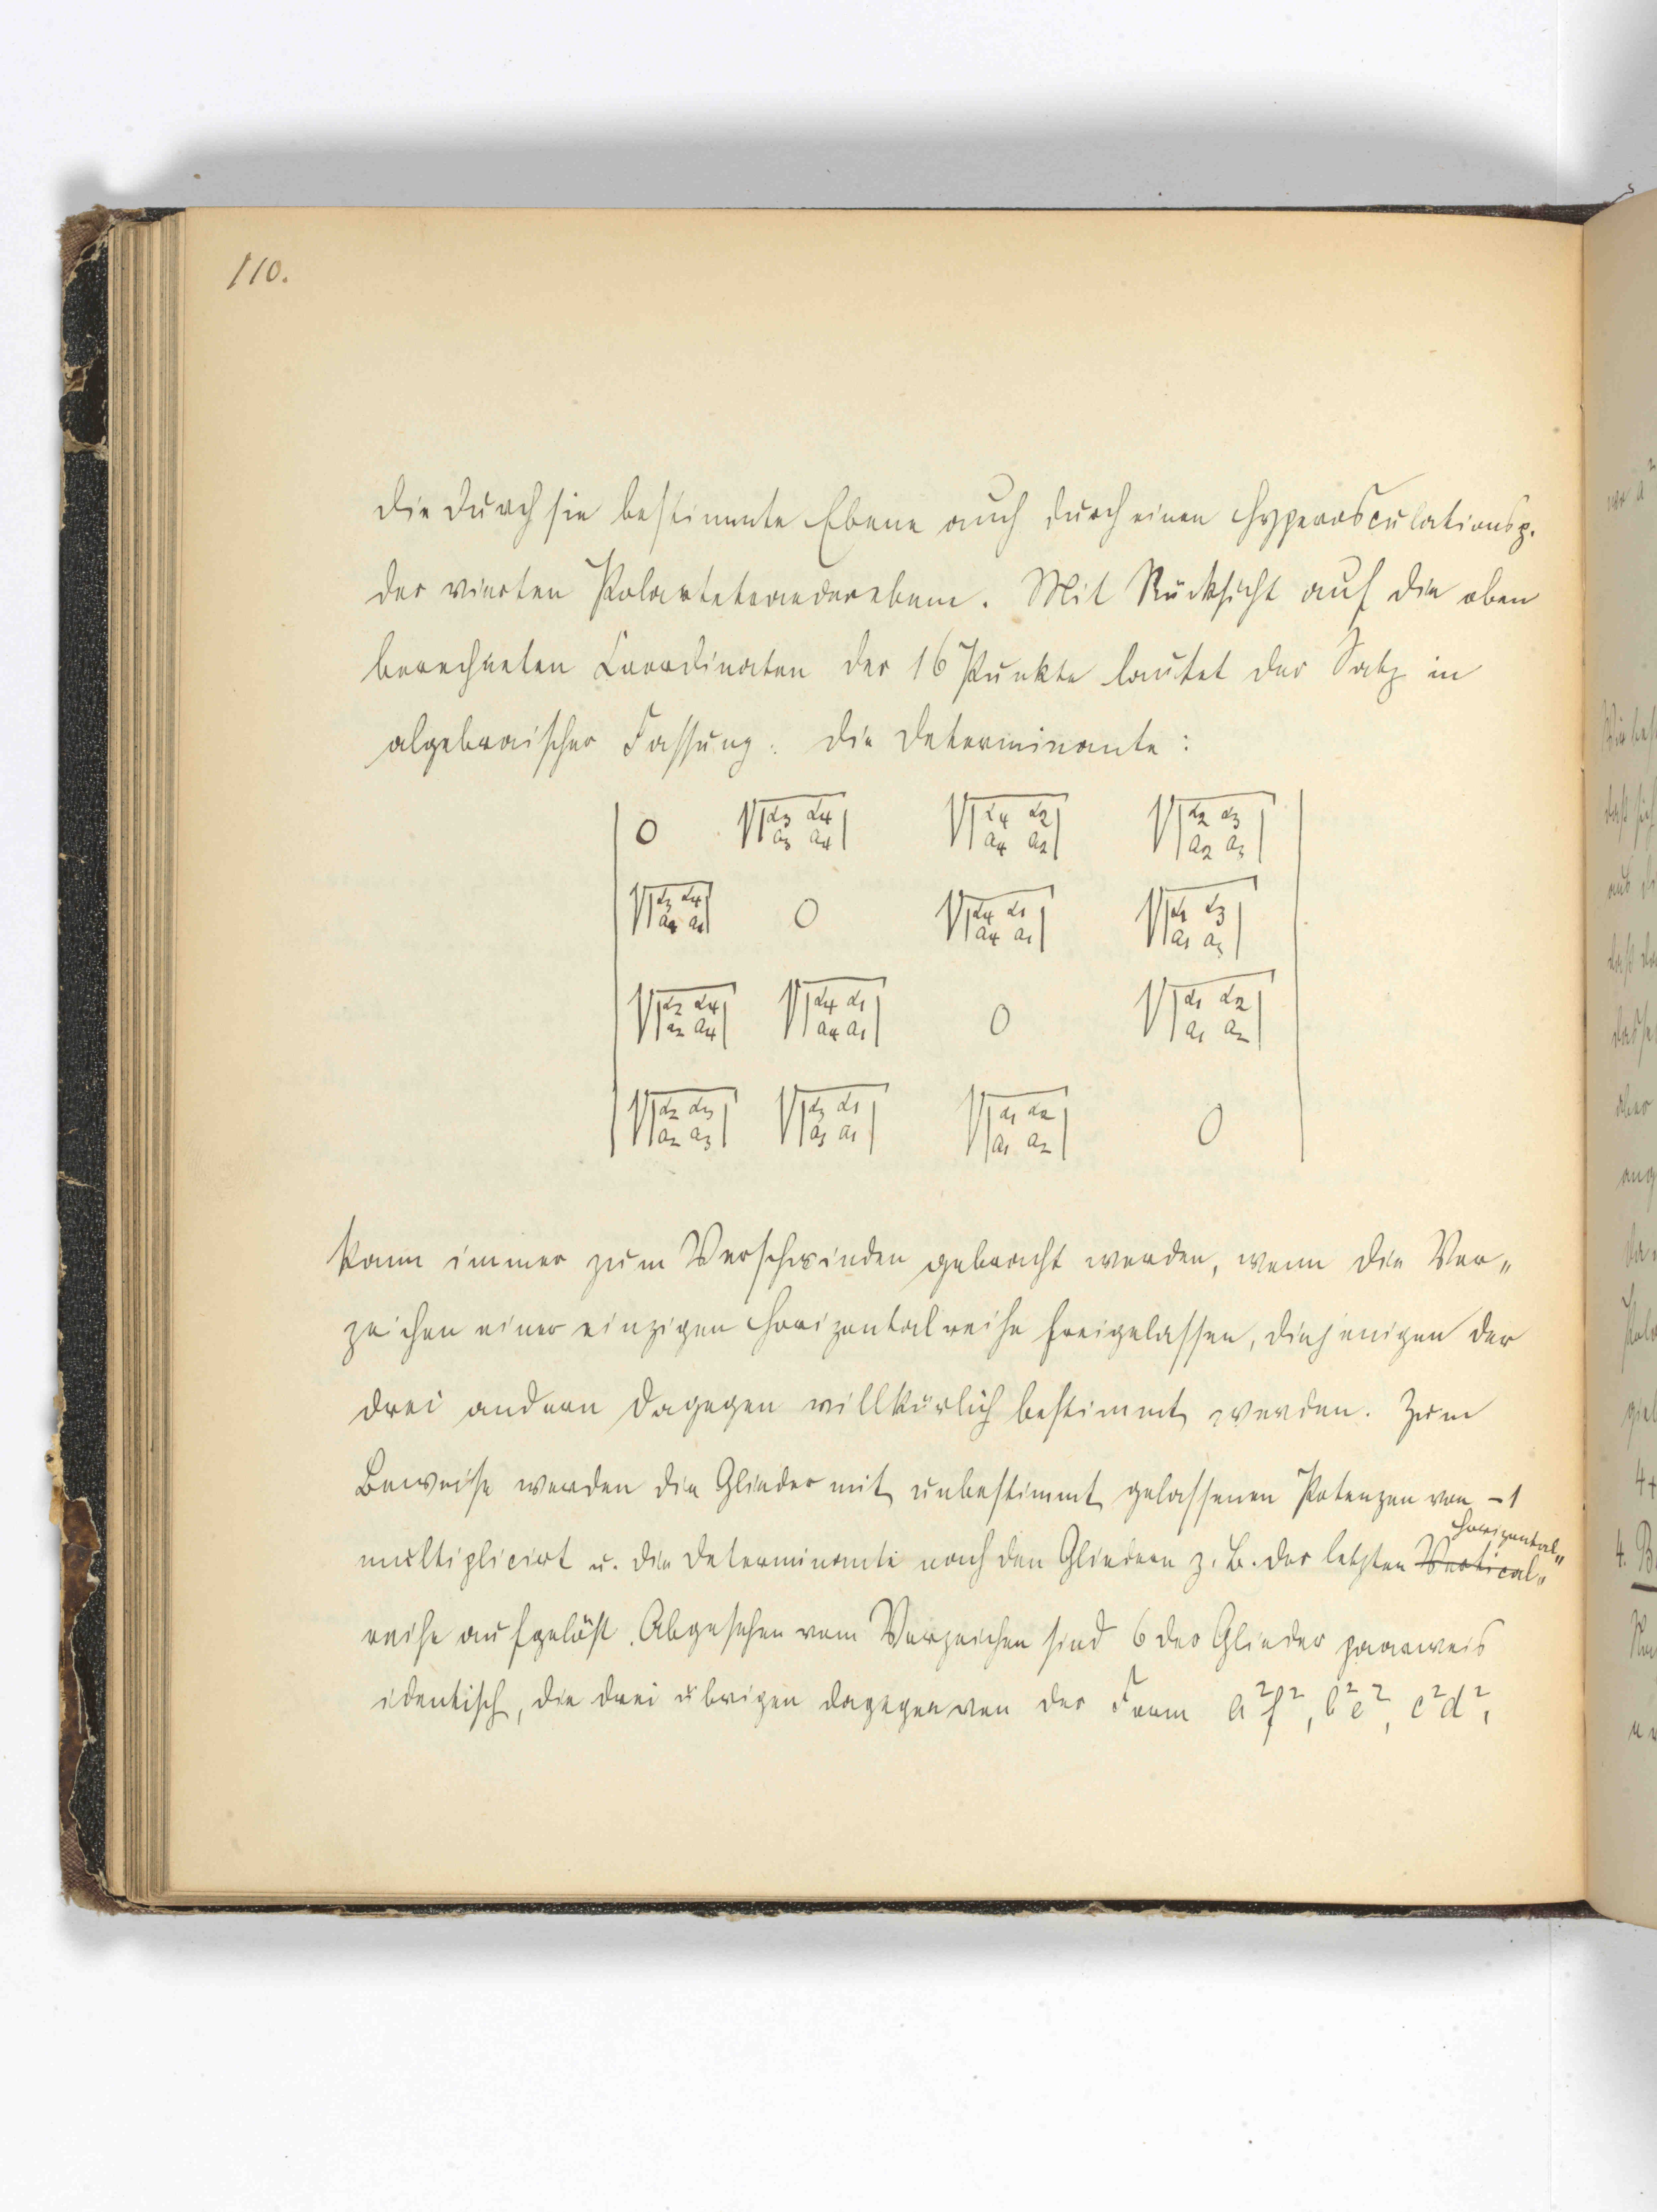 110.
die durch sie bestimmte Ebene auch durch einen Hyperosculationsp.
der vierten Polartetraederebene. Mit Rücksicht auf die oben
berechneten Coordinaten der 16 Punkte lautet der Satz in
algebraischer Fassung: die Determinante:
| 0 √|α3 α4 a3 a4| √|α4 α2 a4 a2| √|α2 α3 a2 a3| |
| √|α3 α4 a3 a4| 0 √|α4 α1 a4 a1| √|α1 α3 a1 a3| |
| √|α2 α4 a2 a4| √|α4 α1 a4 a1| 0 √|α1 α2 a1 a2| |
| √|α2 α3 a2 a3| √|α3 α1 a3 a1| √|α1 α2 a1 a2| 0 |
kann immer zum Verschwinden gebracht werden, wenn die Vor„
zeichen einer einzigen Horizontalreihe freigelassen, diejenigen der
drei andern dagegen willkürlich bestimmt werden. Zum
Beweise werden die Glieder mit unbestimmt gelassenen Potenzen von -1
Horizontal„
multiplicirt u. die Determinante nach den Gliedern z. B. der letzten Vertical„
reihe aufgelöst. Abgesehen vom Vorzeichen sind 6 der Glieder paarweis
identisch, die drei übrigen dagegen von der Form a²f², b²e², c²d²,